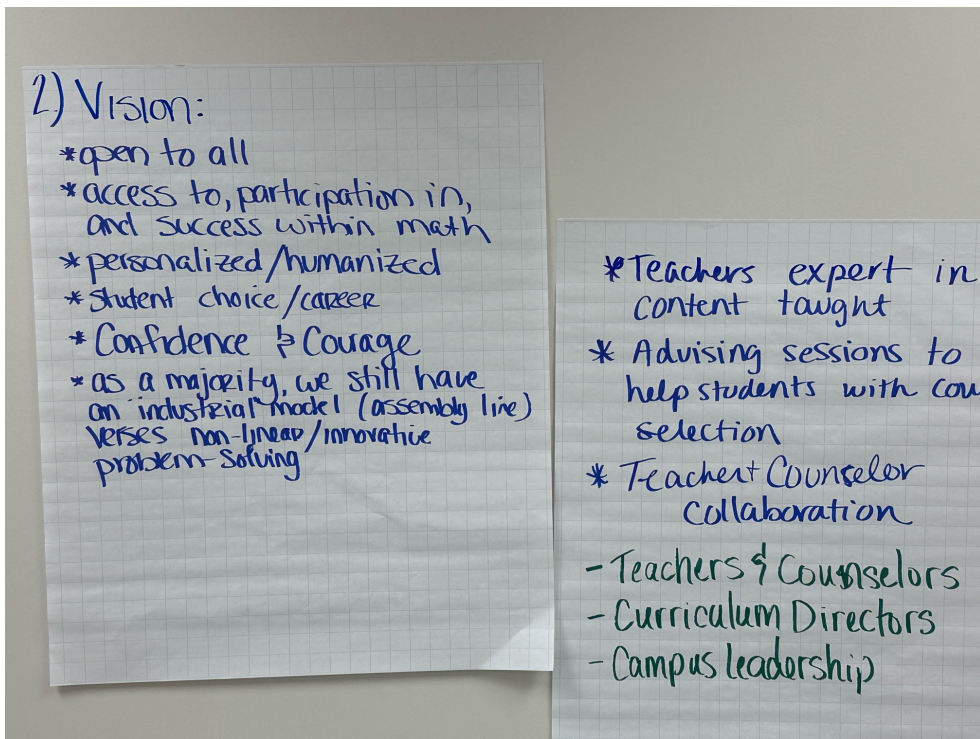 2) Vision:
* open to all
* access to, participation in,
and success within math
* personalized/humanized
* student choice/career
* Confidence & Courage
* as a majority, we still have
an "industrial" model (assembly line)
verses non-linear/innovative
problem-solving
* Teachers expert in
content taught
* Advising sessions to
help students with cou
selection
* Teacher + Counselor
collaboration
- Teachers & Counselors
- Curriculum Directors
- Campus leadership